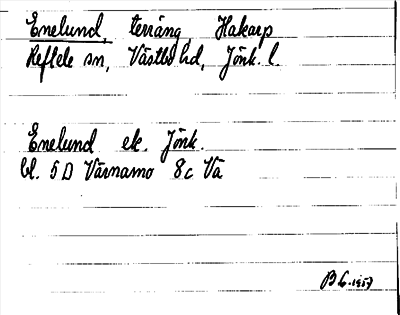 Enelund, terräng, Hakarp
Reftele sn, Västbo hd, Jönk. l.
Enelund ek. Jönk.
bl. 5D Värnamo 8c Vä
1957